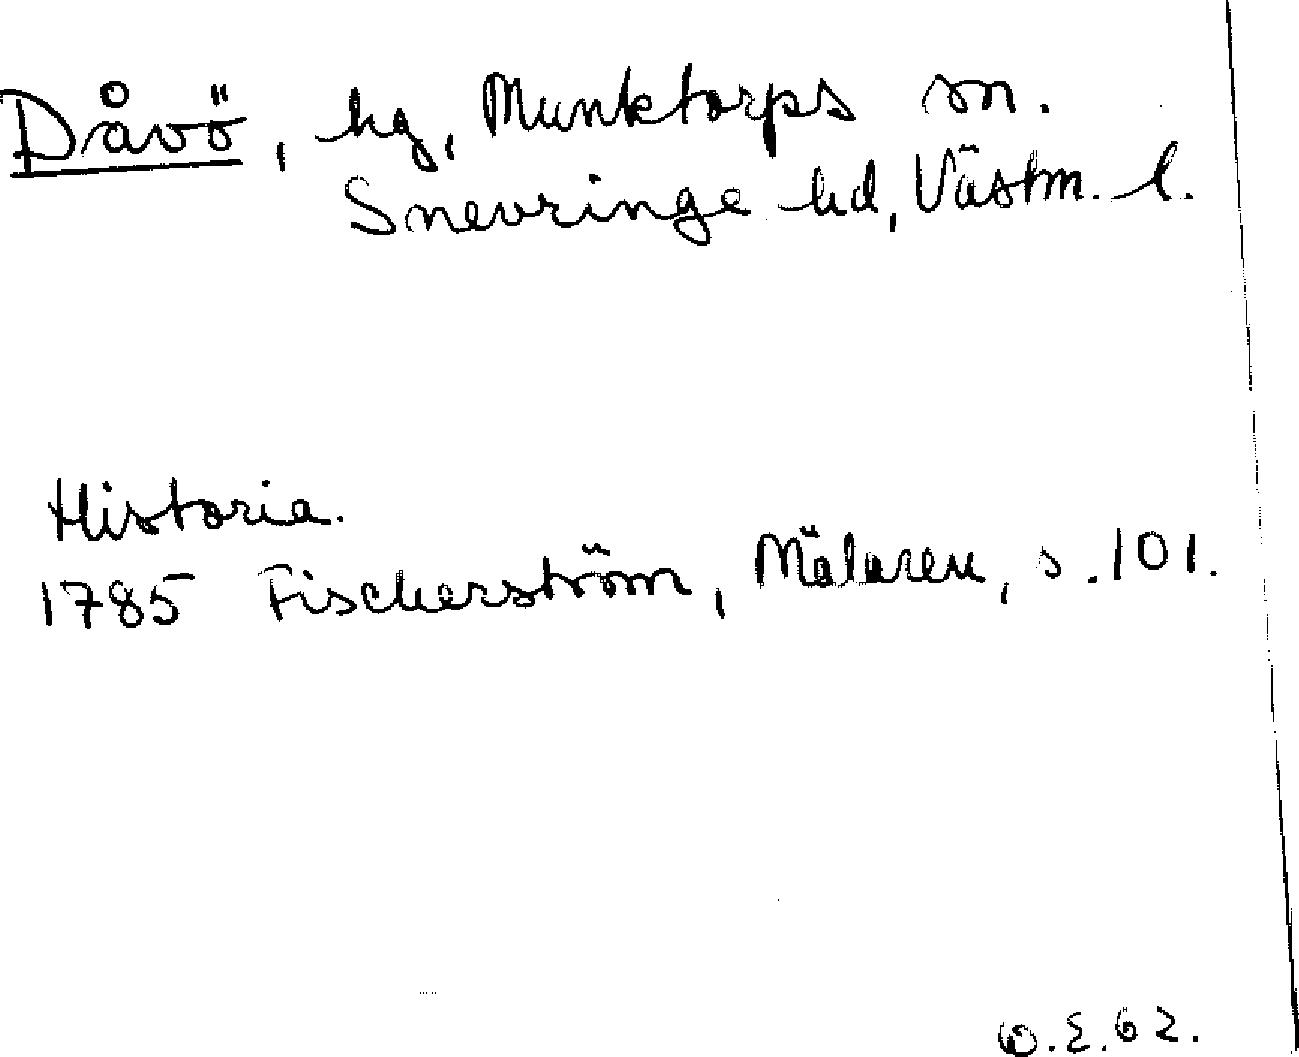 Dåvö, hg, Munktorps sn.
Snevringe hd, Västm. l.
Historia.
1785 Fischerström, Mälaren, s. 101.
O.E.62.